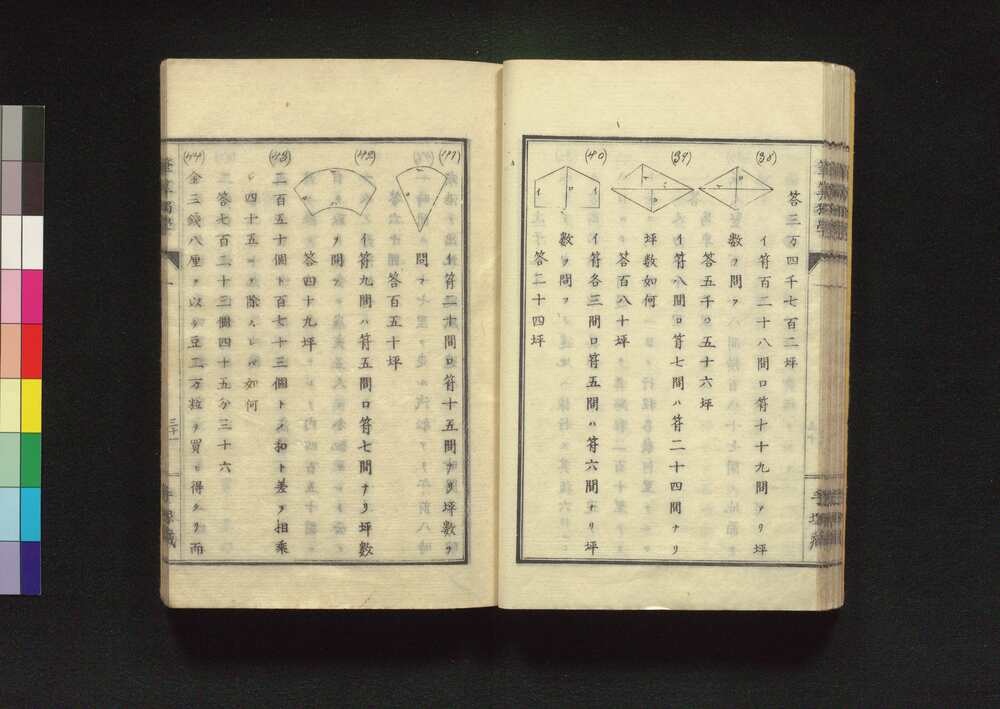 答三万四千七百二坪
(38)
イ符百二十八間ロ符七十九間ナリ坪
数ヲ問フ
答五千〇五十六坪
(39)
イ符八間ロ符七間ハ符二十四間ナリ
坪数如何
答百八十坪
(40)
イ符各三間ロ符五間ハ符六間ナリ坪
数ヲ問フ
答二十四坪
(41)
イ符二十間ロ符十五間ナリ坪数ヲ
問フ
答百五十坪
(42)
イ符九間ハ符五間ロ符七間ナリ坪数
ヲ問フ
答四十九坪
(43)
二百五十個ト百七十三個トノ和ト差ヲ相乗
シ四十五ニテ除スレハ如何
答七百二十三個四十五分三十六
(44)
金三銭八厘ヲ以テ豆二万粒ヲ買ヒ得タリ而
三十一